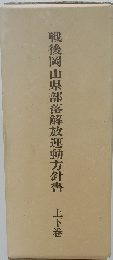 戦後岡山県部落解放運動方針書
上下巻